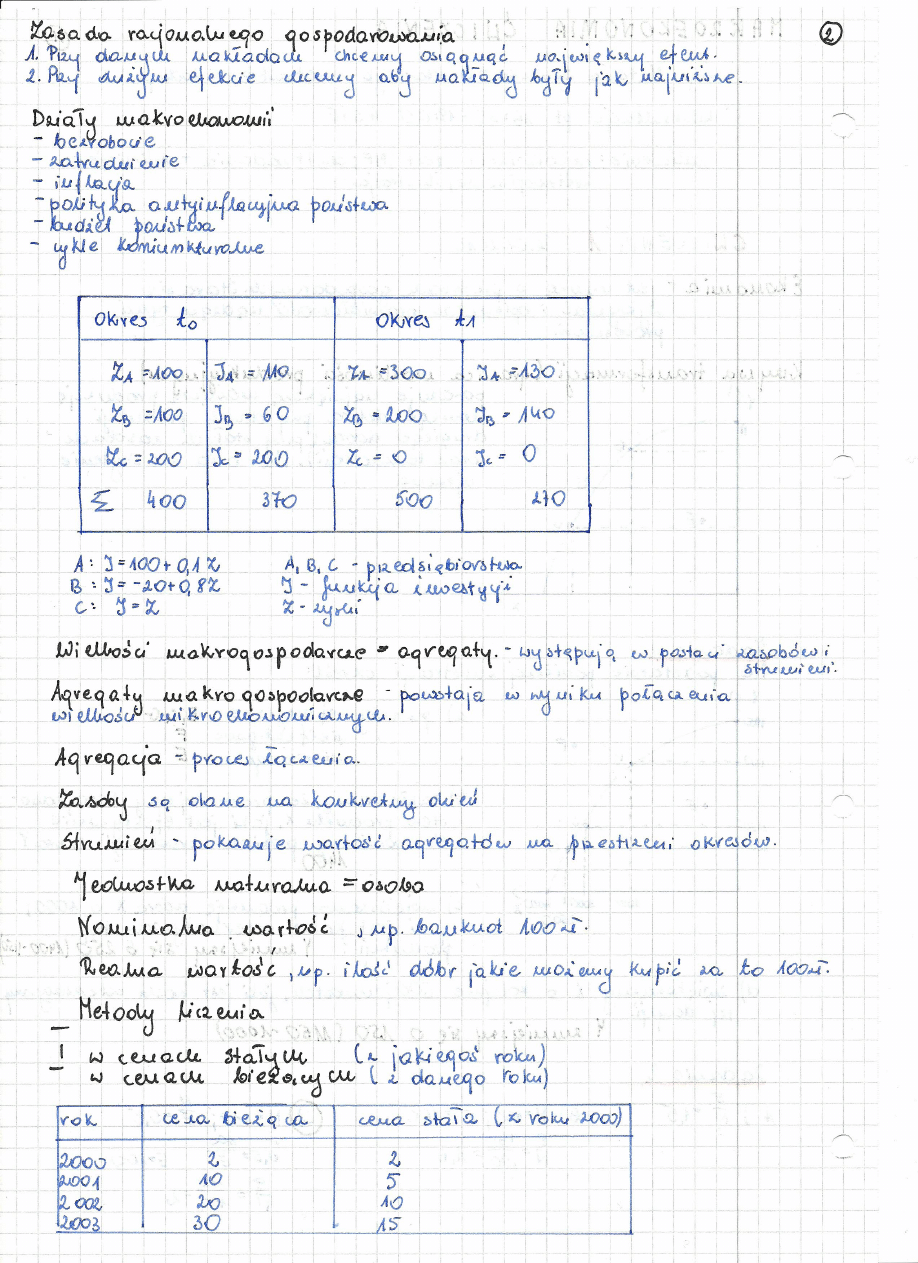 2
Zasada racjonalnego gospodarowania
1. Przy danych nakładach chcemy osiągnąć największy efekt.
2. Przy dużym efekcie chcemy aby nakłady były jak najniższe.
Działy makroekonomii
- bezrobocie
- zatrudnienie
- inflacja
- polityka antyinflacyjna państwa
- budżet państwa
- cykle koniunkturalne
Okres t0 Okres t1
ZA = 100 JA = 110 ZA = 300 JA = 130
ZB = 100 JB = 60 ZB = 200 JB = 140
ZC = 200 JC = 200 ZC = 0 JC = 0
Σ 400 370 500 270
A: J = 100 + 0,1 Z A, B, C - przedsiębiorstwa
B: J = -20 + 0,8 Z J - funkcja inwestycji
C: J = Z Z - zyski
Wielkości makrogospodarcze = agregaty. - występują w postaci zasobów i
strumieni.
Agregaty makrogospodarcze - powstają w wyniku połączenia
wielkości mikroekonomicznych.
Agregacja - proces łączenia.
Zasoby są dane na konkretny dzień
Strumień - pokazuje wartość agregatów na przestrzeni okresów.
Jednostka naturalna = osoba
Nominalna wartość, np. banknot 100 zł.
Realna wartość, np. ilość dóbr jakie możemy kupić za to 100 zł.
Metody liczenia
! w cenach stałych (z jakiegoś roku)
w cenach bieżących (z danego roku)
rok cena bieżąca cena stała (z roku 2000)
2000 2 2
2001 10 5
2002 20 10
2003 30 15